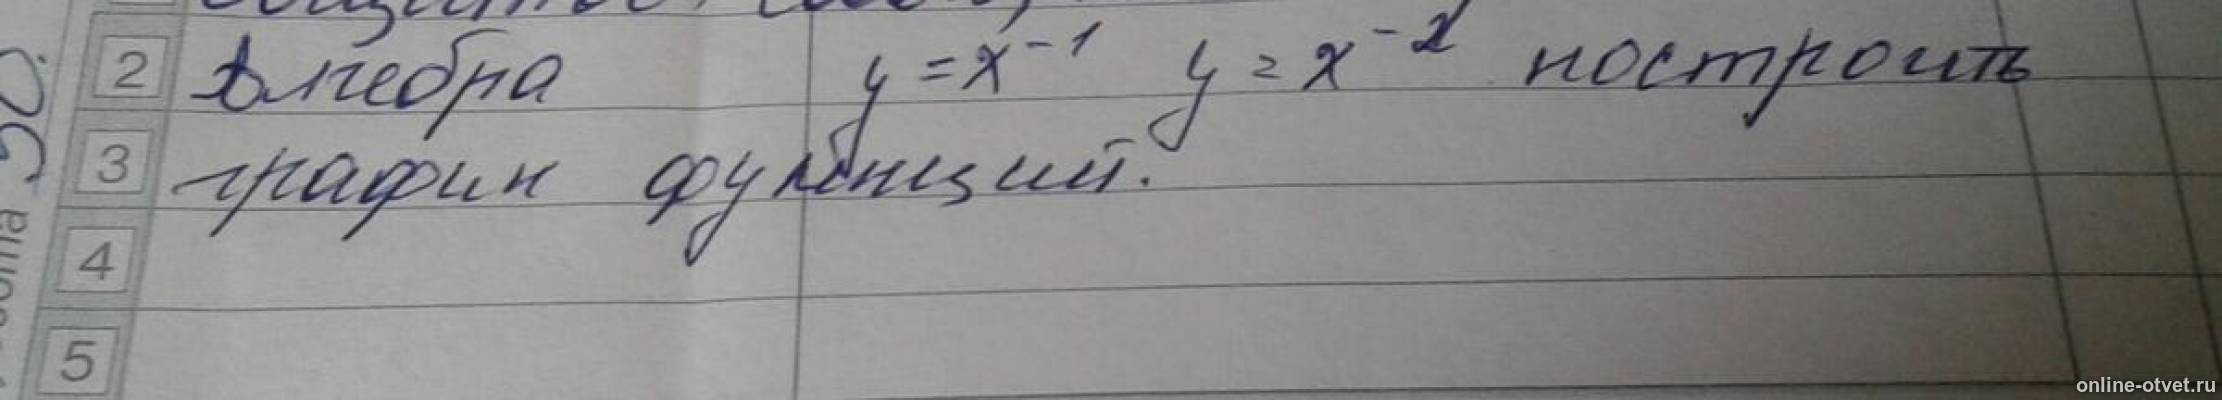 2 Алгебра y = x⁻¹ y = x⁻² построить
3 график функций.
4
5
online-otvet.ru